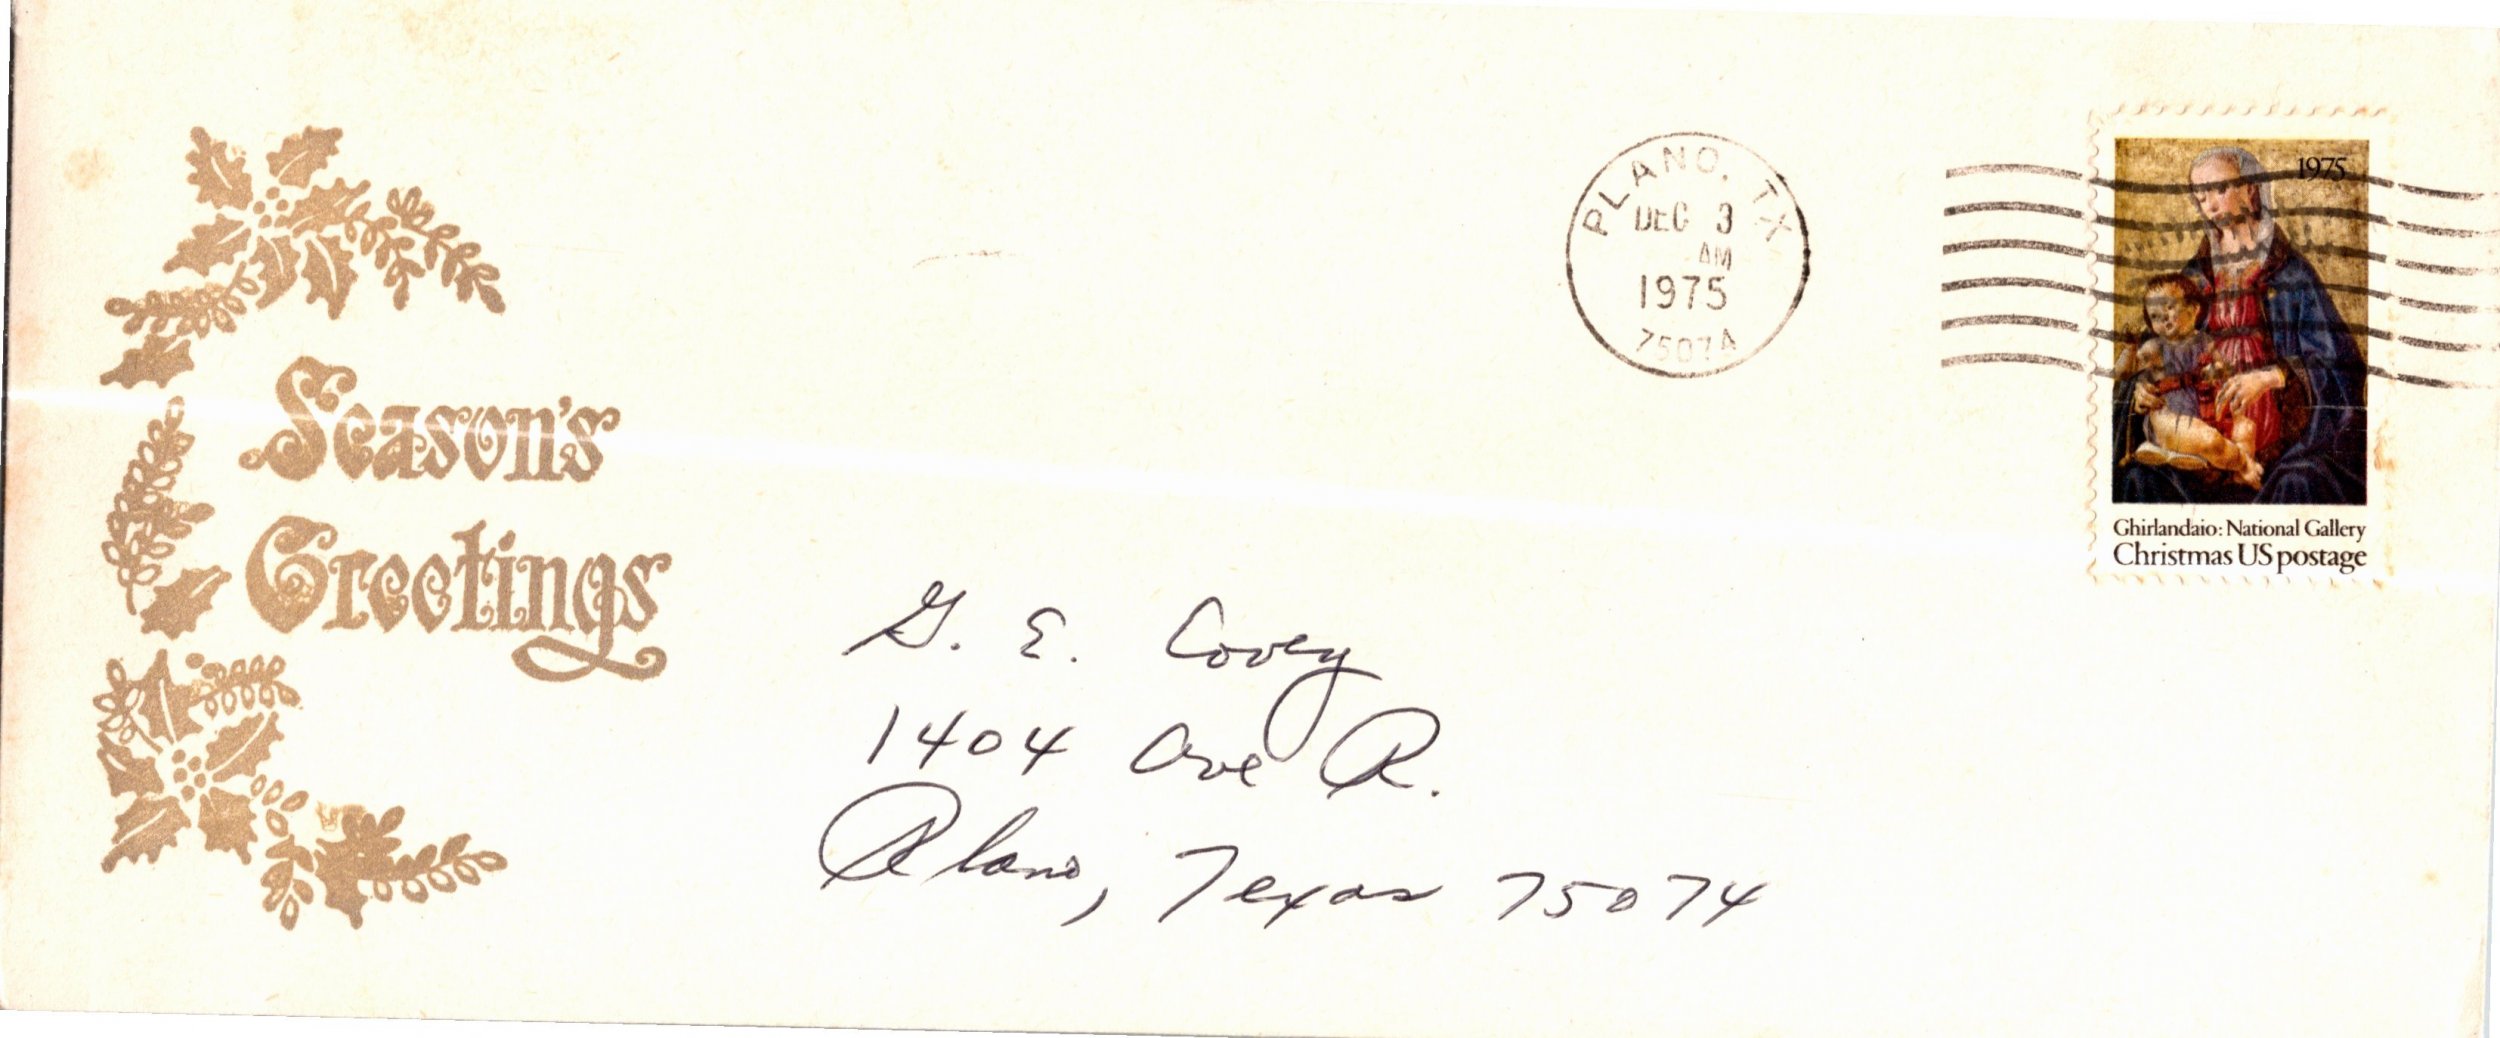 Season's
Greetings
PLANO, TX
DEC 3
AM
1975
75074
1975
Ghirlandaio: National Gallery
Christmas US postage
G. E. Covey
1404 Ave R.
Plano, Texas 75074